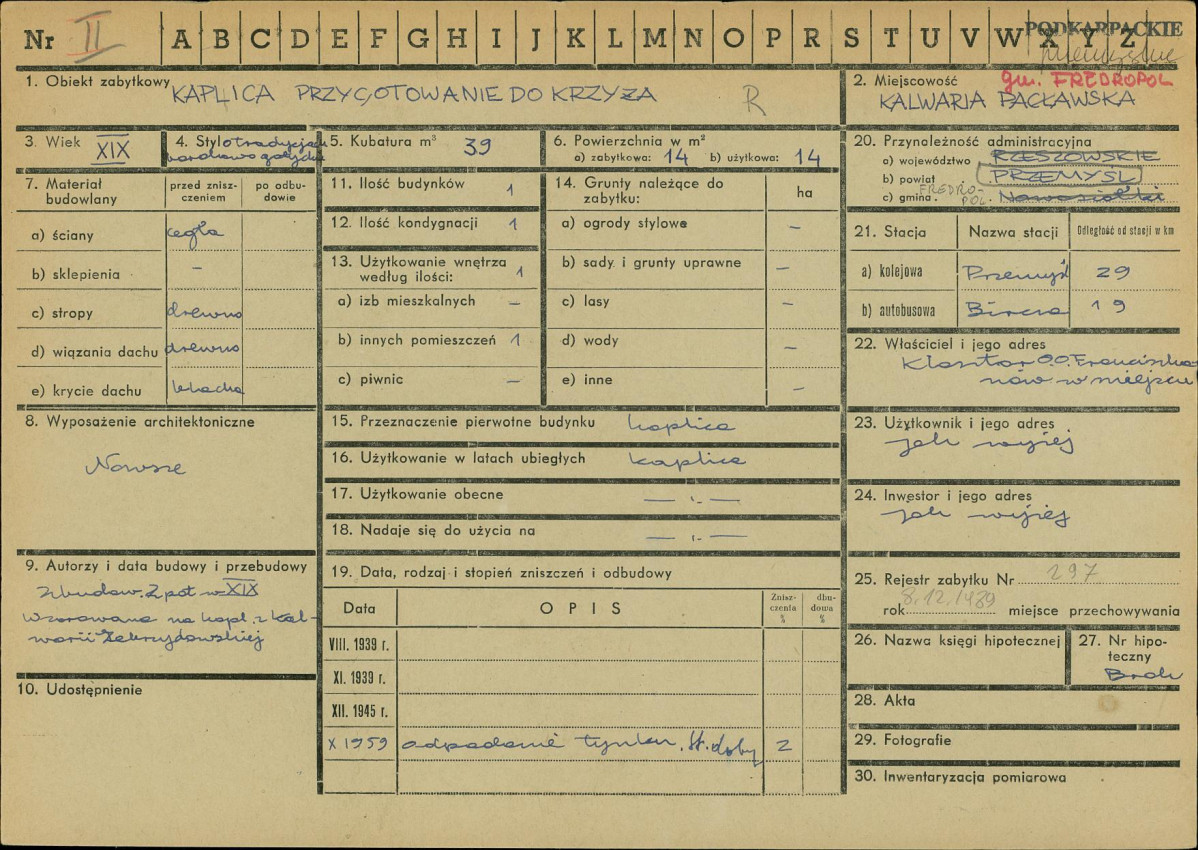 Nr II A B C D E F G H I J K L M N O P R S T U V W X Y Z
PODKARPACKIE
przemyskie
1. Obiekt zabytkowy KAPLICA PRZYGOTOWANIE DO KRZYŻA R
2. Miejscowość gm. FREDROPOL
KALWARIA PACŁAWSKA
3. Wiek XIX
4. Styl o tradycjach
barokowo gotyckich
5. Kubatura m³ 39
6. Powierzchnia w m²
a) zabytkowa: 14 b) użytkowa: 14
7. Materiał budowlany
przed zniszczeniem
po odbudowie
a) ściany cegła
b) sklepienia –
c) stropy drewno
d) wiązania dachu drewno
e) krycie dachu blacha
8. Wyposażenie architektoniczne
Nowsze
9. Autorzy i data budowy i przebudowy
Zbudow. 2 poł w XIX
wzorowana na kapl. z Kal-
warii Zebrzydowskiej
10. Udostępnienie
11. Ilość budynków 1
12. Ilość kondygnacji 1
13. Użytkowanie wnętrza
według ilości: 1
a) izb mieszkalnych –
b) innych pomieszczeń 1
c) piwnic –
14. Grunty należące do
zabytku:
ha
a) ogrody stylowe –
b) sady i grunty uprawne –
c) lasy –
d) wody –
e) inne –
15. Przeznaczenie pierwotne budynku kaplica
16. Użytkowanie w latach ubiegłych kaplica
17. Użytkowanie obecne — „ —
18. Nadaje się do użycia na — „ —
19. Data, rodzaj i stopień zniszczeń i odbudowy
Data OPIS Znisz-
czenia
%
dbu-
dowa
%
VIII. 1939 r.
XI. 1939 r.
XII. 1945 r.
X 1959 odpadanie tynku. St. dobry 2
20. Przynależność administracyjna
a) województwo RZESZOWSKIE
b) powiat PRZEMYŚL
c) gmina FREDRO-
POL. Nowosiółki
21. Stacja Nazwa stacji Odległość od stacji w km
a) kolejowa Przemyśl 29
b) autobusowa Bircza 19
22. Właściciel i jego adres
Klasztor O.O. Franciszka-
nów w miejscu
23. Użytkownik i jego adres
jak wyżej
24. Inwestor i jego adres
jak wyżej
25. Rejestr zabytku Nr 297
rok 8.12.1989 miejsce przechowywania
26. Nazwa księgi hipotecznej
27. Nr hipo-
teczny
Brak
28. Akta
29. Fotografie
30. Inwentaryzacja pomiarowa